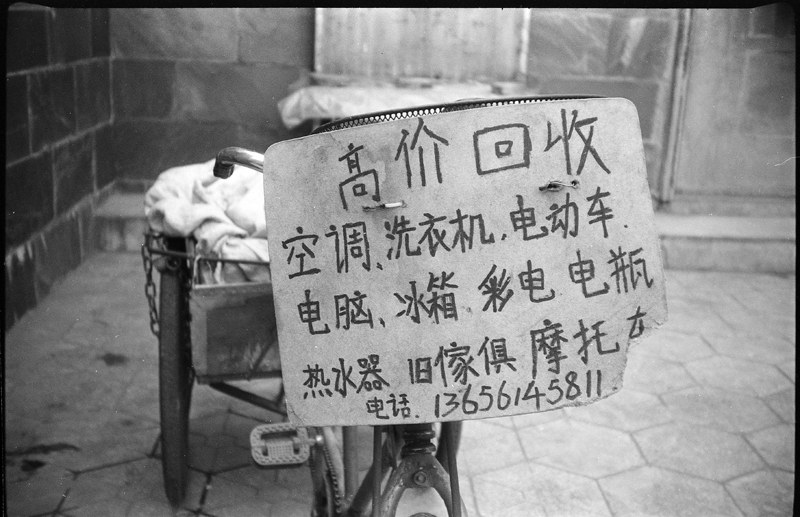 高价回收
空调、洗衣机、电动车.
电脑、冰箱 彩电 电瓶
热水器 旧傢俱 摩托
电话. 13656145811.